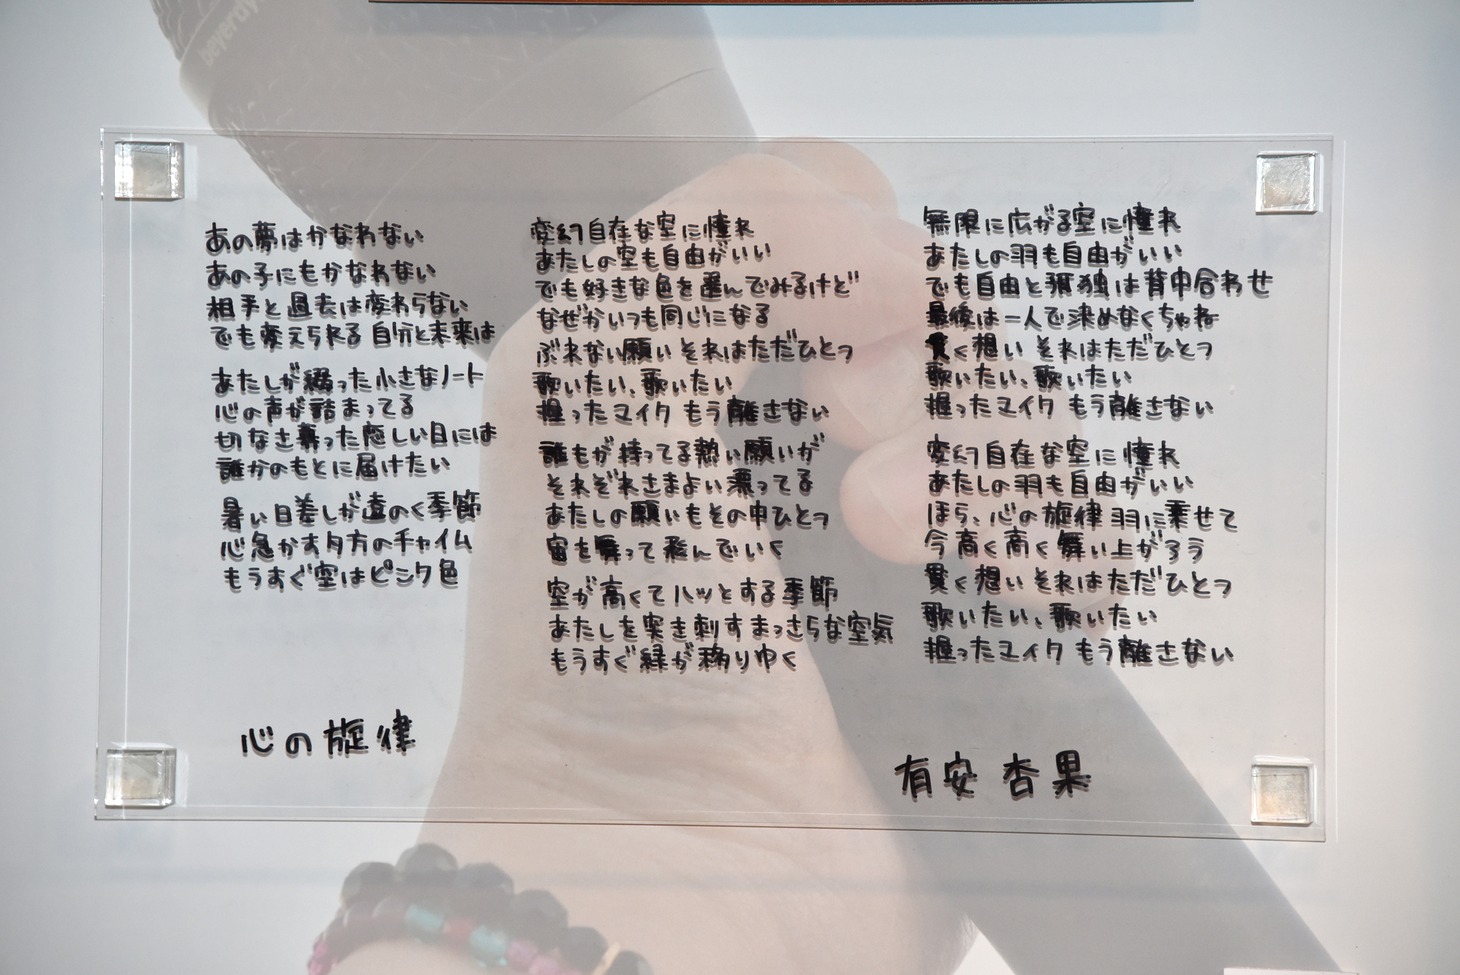 beyerdy
あの夢はかなわない
あの子にもかなわない
相手と過去は変わらない
でも変えられる 自分と未来は
あたしが綴った小さなノート
心の声が詰まってる
切なさ募った悲しい日には
誰かのもとに届けたい
暑い日差しが遠のく季節
心急かす夕方のチャイム
もうすぐ空はピンク色
心の旋律
変幻自在な空に憧れ
あたしの空も自由がいい
でも好きな色を選んでみるけど
なぜかいつも同じになる
ぶれない願い それはただひとつ
歌いたい、歌いたい
握ったマイク もう離さない
誰もが持ってる熱い願いが
それぞれさまよい漂ってる
あたしの願いもその中ひとつ
宙を舞って飛んでいく
空が高くてハッとする季節
あたしを突き刺すまっさらな空気
もうすぐ緑が移りゆく
無限に広がる空に憧れ
あたしの羽も自由がいい
でも自由と孤独は背中合わせ
最後は一人で決めなくちゃね
貫く想い それはただひとつ
歌いたい、歌いたい
握ったマイク もう離さない
変幻自在な空に憧れ
あたしの羽も自由がいい
ほら、心の旋律 羽に乗せて
今高く高く舞い上がろう
貫く想い それはただひとつ
歌いたい、歌いたい
握ったマイク もう離さない
有安 杏果